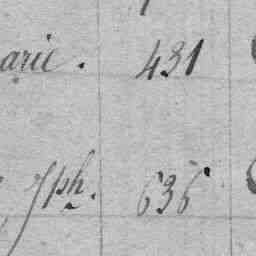 arie. 431
Jph. 636